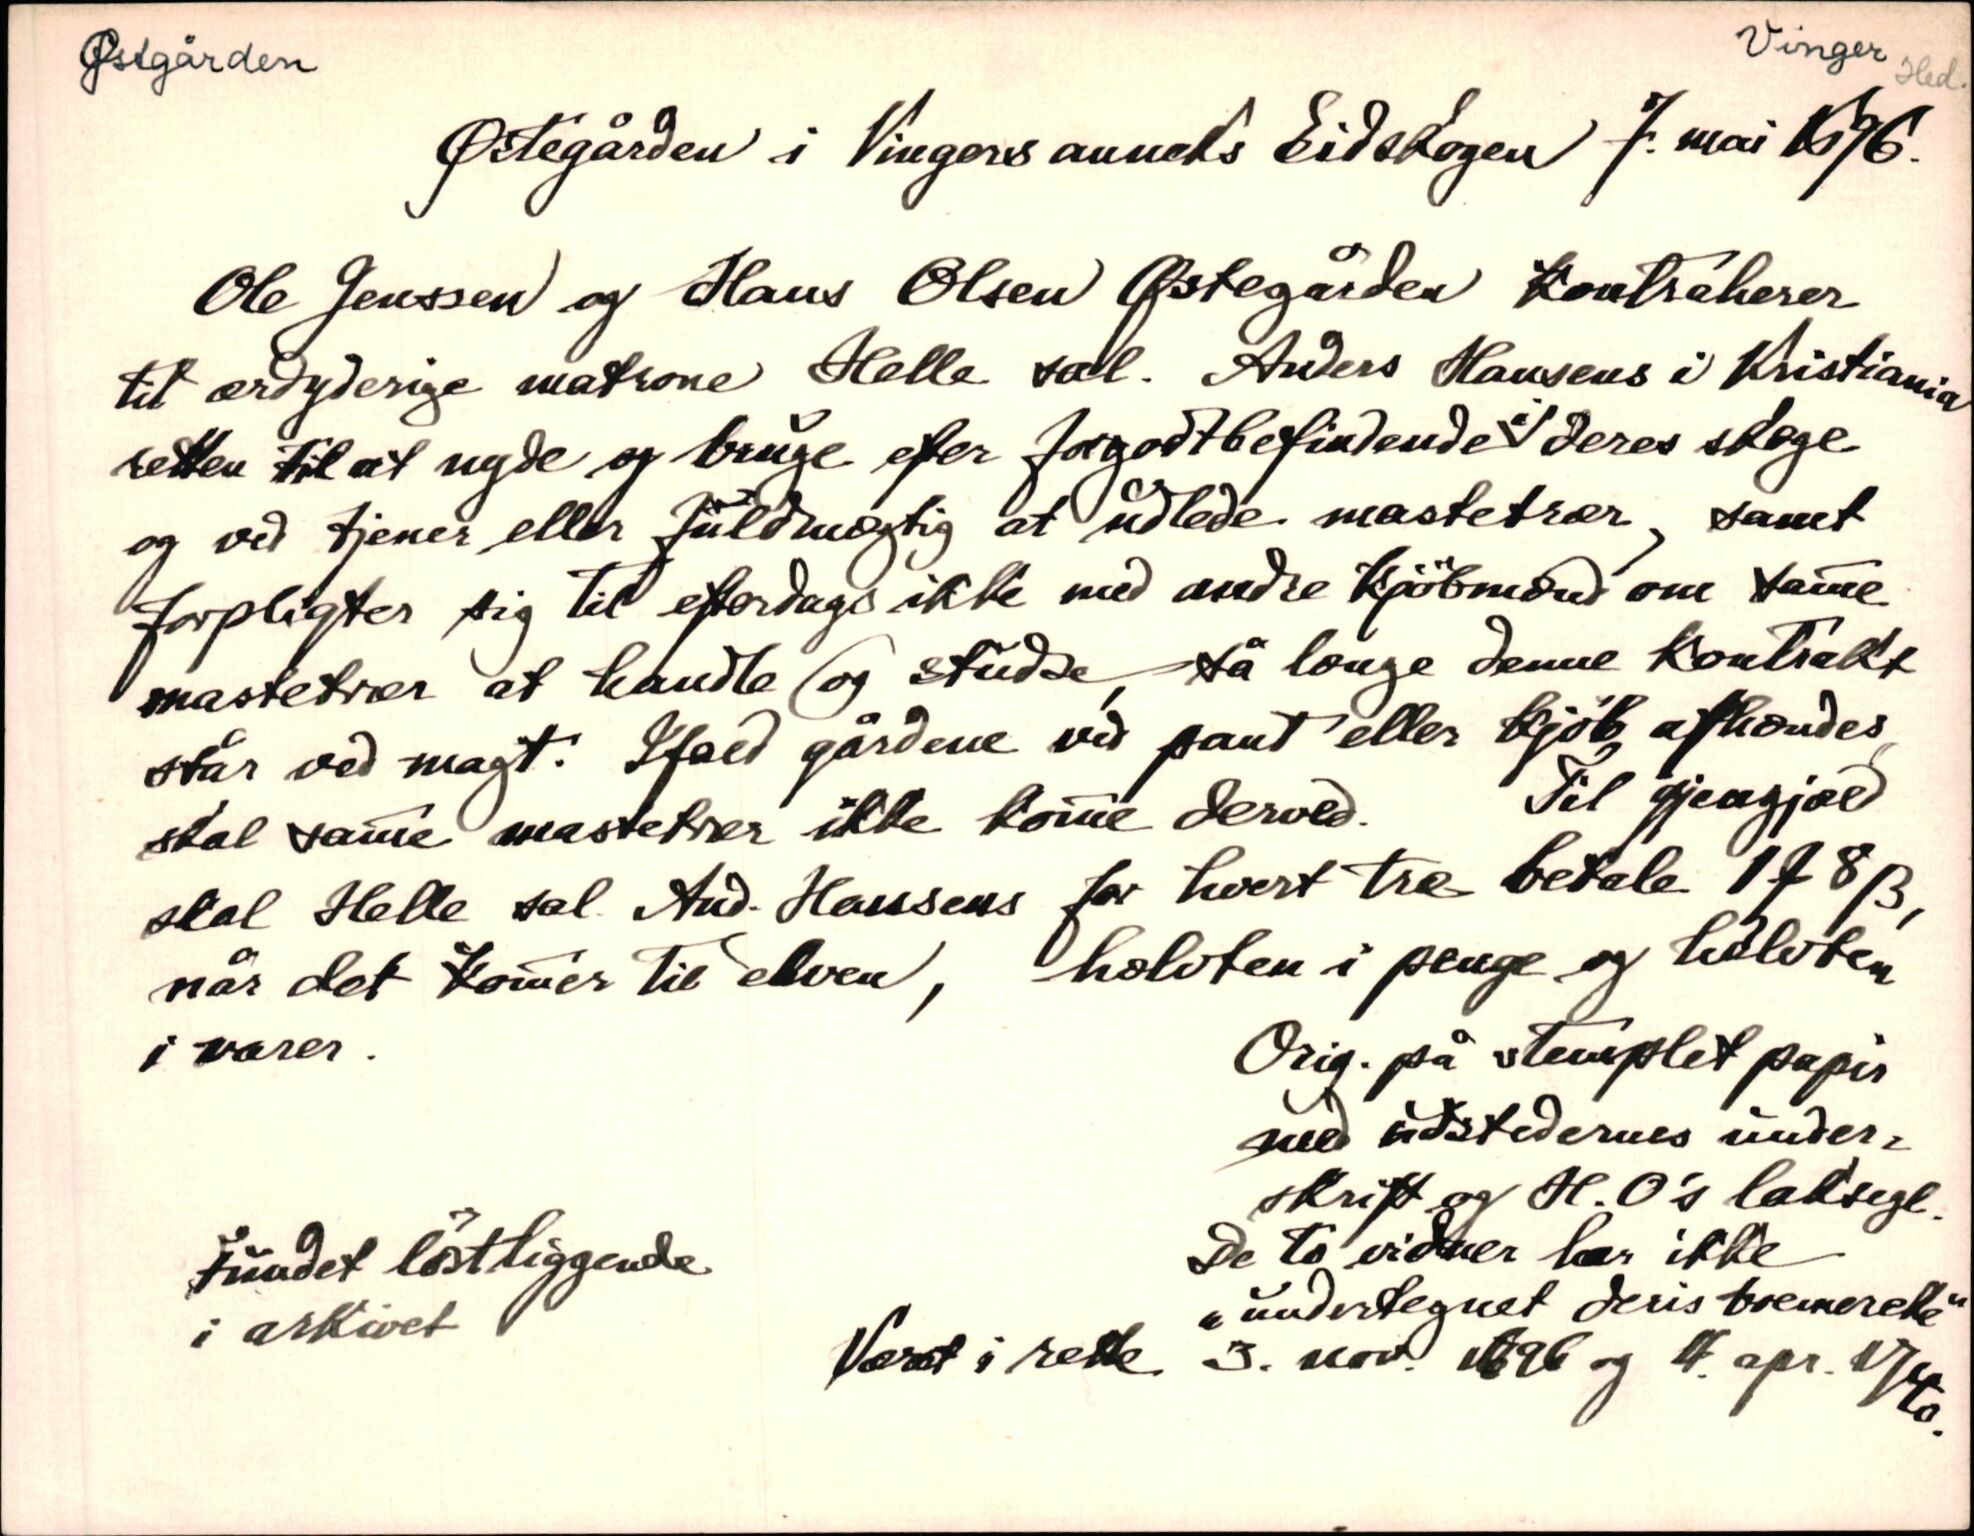 Østgården
Vinger Hed.
Østegården i Vingers anneks Eidskogen 7. mai 1696.
Ole Jenssen og Hans Olsen Østegården kontraherer
til ærdyderige matrone Helle sal. Anders Hansens i Kristiania
retten til at nyde og bruge efter forgodtbefindende i deres skoge
og ved tjener eller fuldmægtig at udlede mastetrær, samt
forpligter sig til efterdags ikke med andre kjöbmænd om samme
mastetrær at handle og studse, så længe denne kontrakt
står ved magt. Ifald gårdene ved pant eller kjöb afhændes,
skal samme mastetrær ikke komme derved. Til gjengjæld
skal Helle sal. And. Hansens for hvert træ betale 1 8 β,
når det kommer til elven, halvten i penge og halvten
i varer.
Orig. på stemplet papir
med udstedernes under-
skrift og H. O's laksegl.
De to vidner har ikke
"undertegnet deris boemercke"
Fundet löstliggende
i arkivet
Været i rette 3. nov. 1696 og 4. apr.